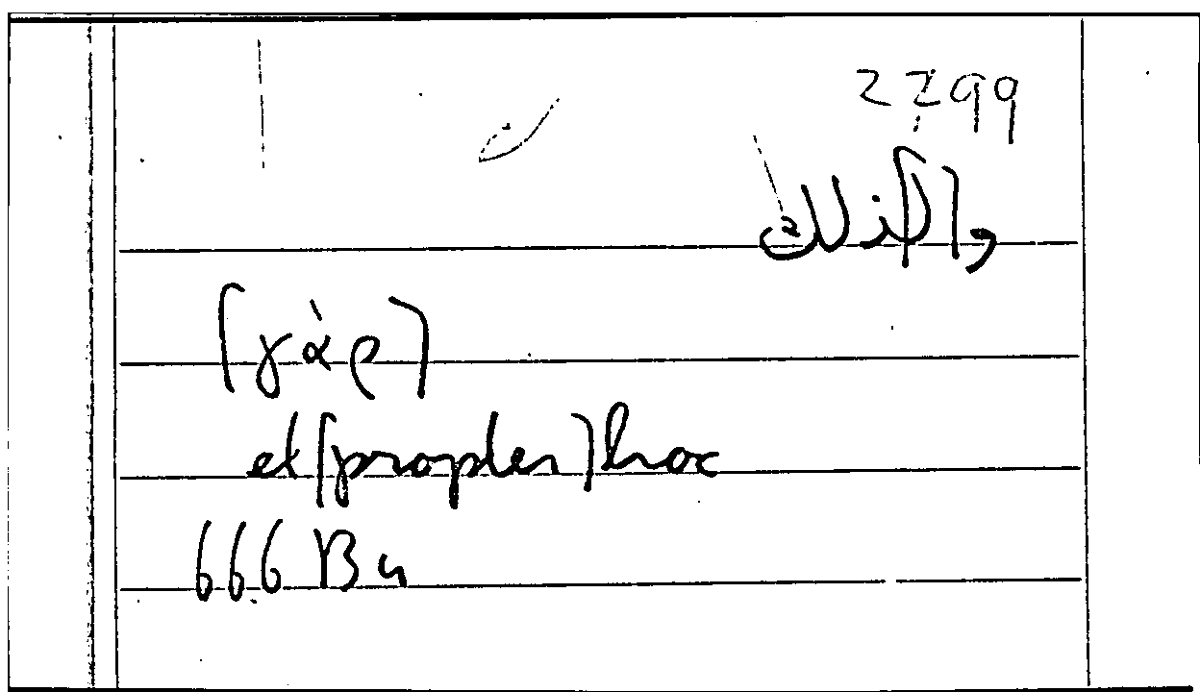 2299
و[ل]ذلك
[γὰρ]
et [propter] hoc
666 B 4